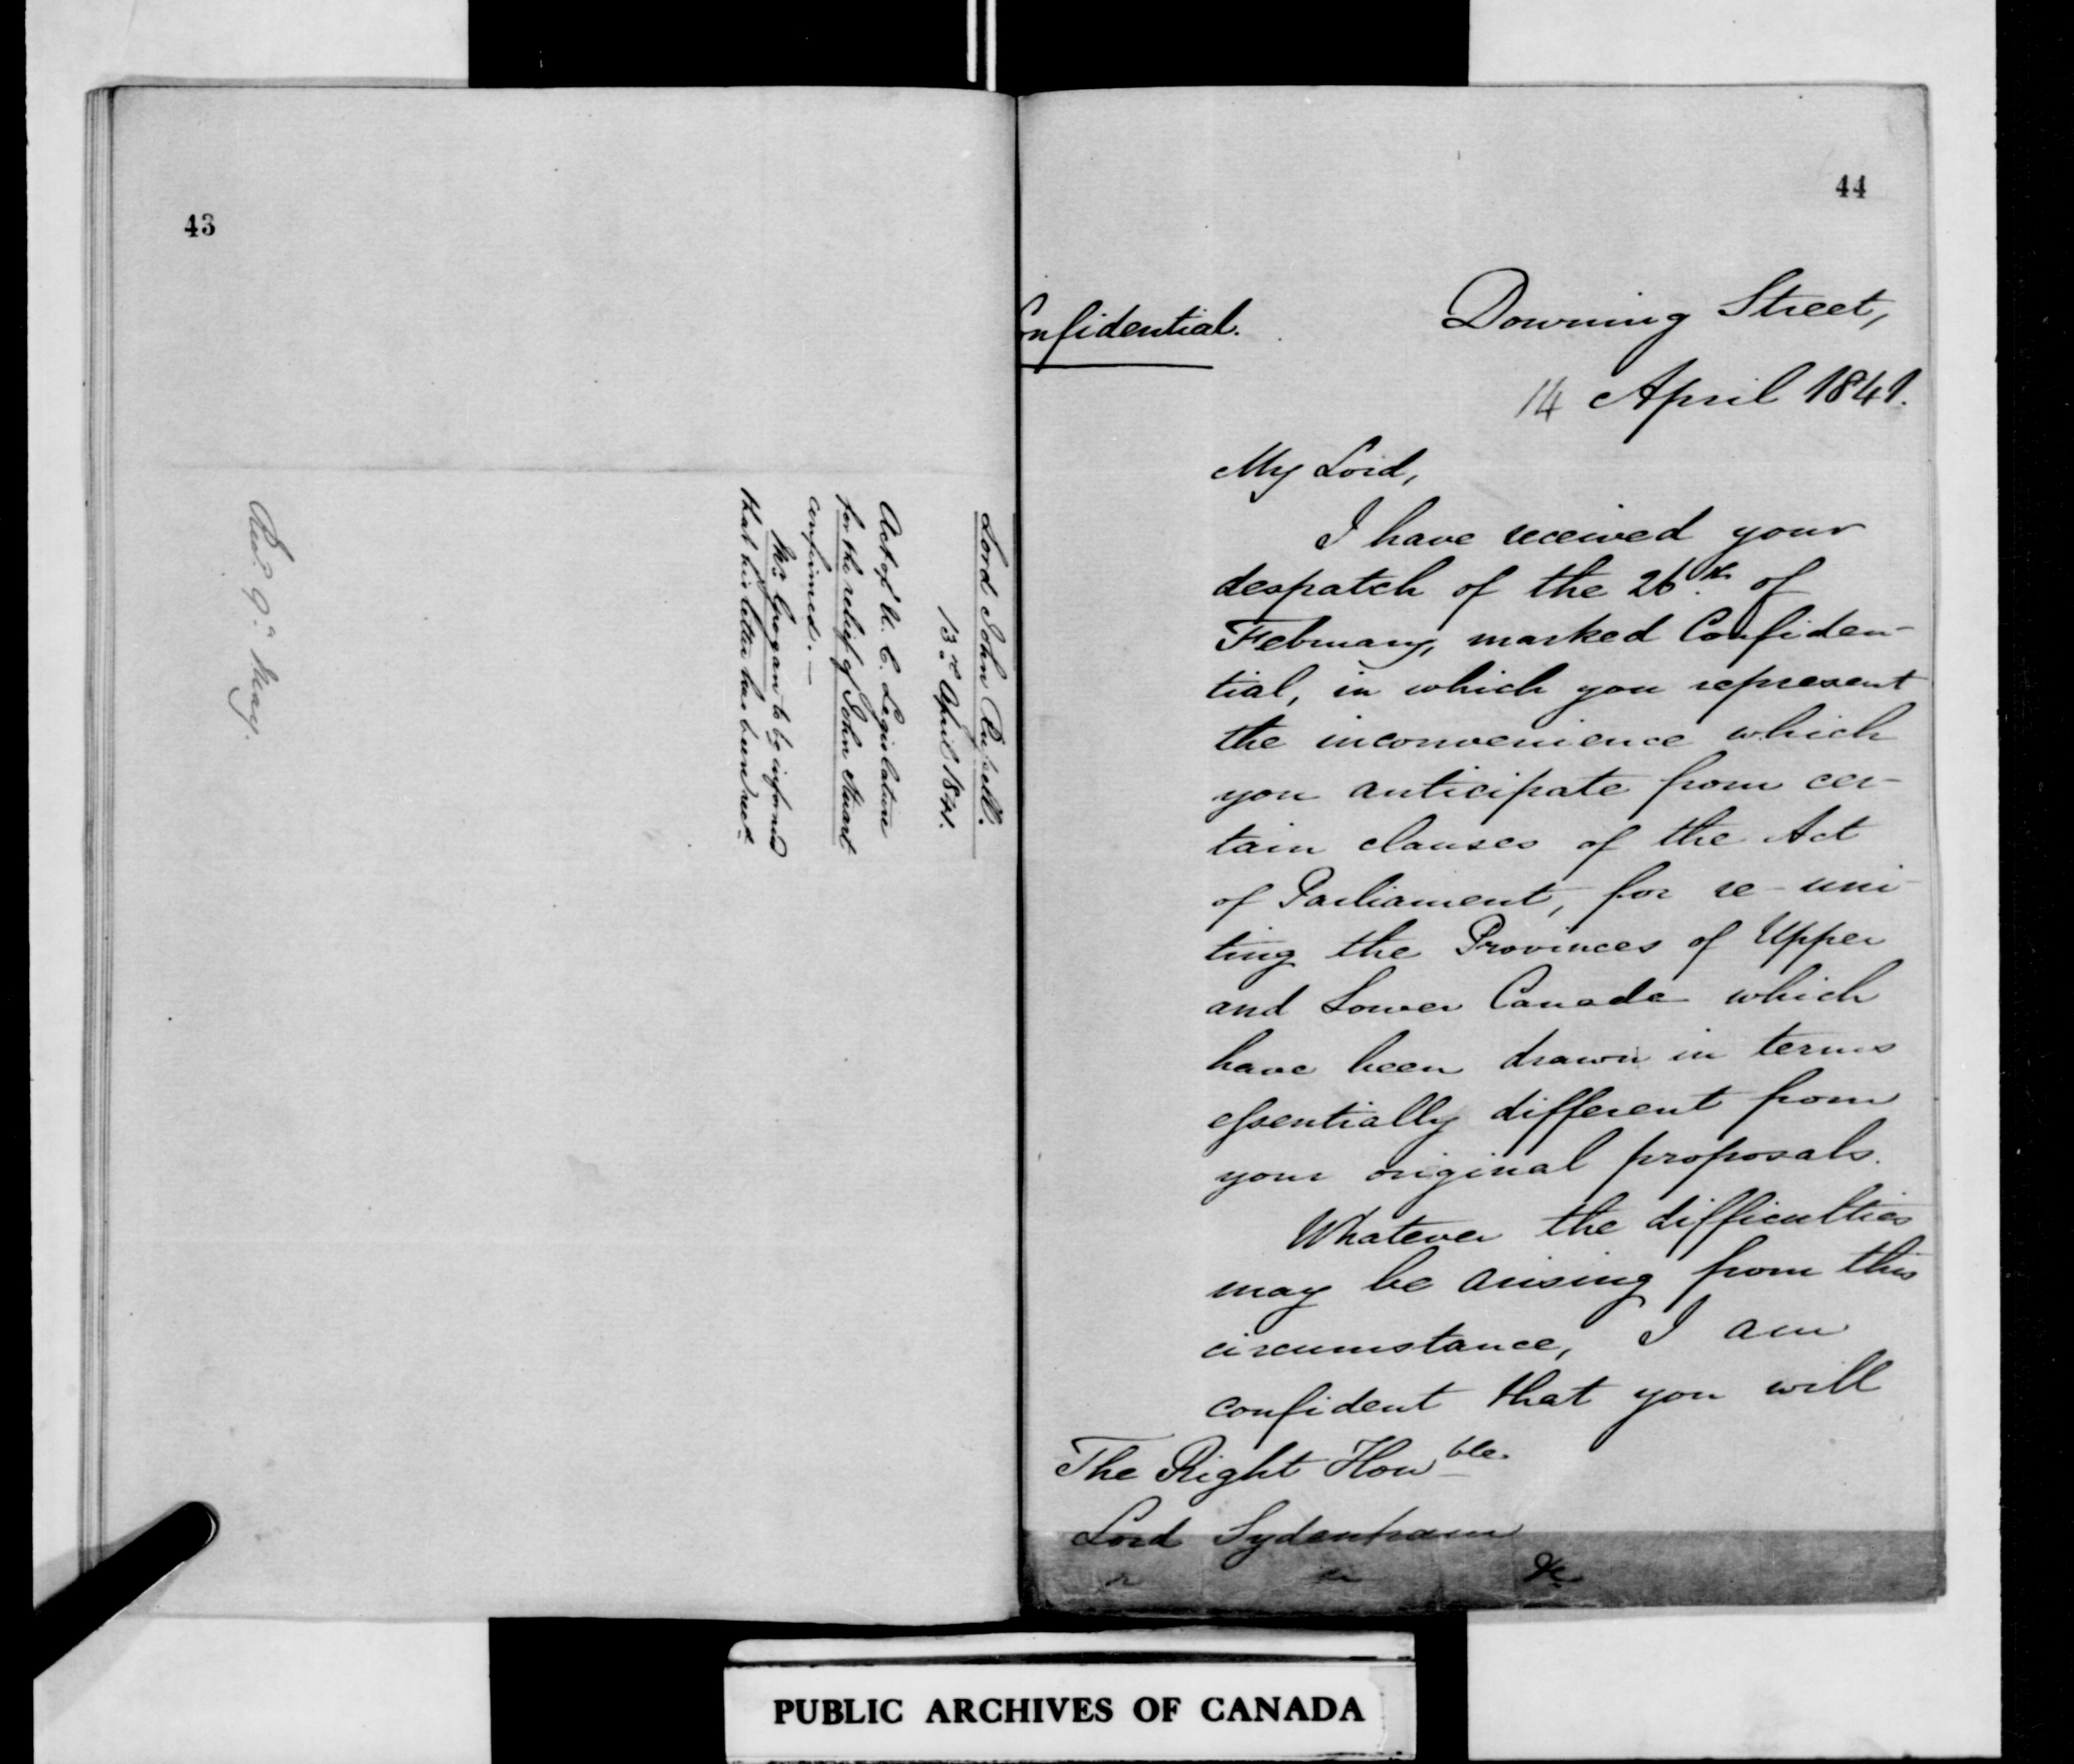 43
Lord John Russell.
13th April 1841.
Act of U. C. Legislature
for the relief of John Stuart
confirmed. —
Mr. Grogan to be informed
that his letter has been recd.
Recd. 9th May.
44
onfidential.
Downing Street,
14 April 1841.
My Lord,
I have received your
despatch of the 26th. of
February, marked Confiden-
tial, in which you represent
the inconvenience which
you anticipate from cer-
tain clauses of the Act
of Parliament, for re-uni-
ting the Provinces of Upper
and Lower Canada which
have been drawn in terms
essentially different from
your original proposals.
Whatever the difficulties
may be arising from this
circumstance, I am
confident that you will
The Right Honble.
Lord Sydenham
&c
PUBLIC ARCHIVES OF CANADA